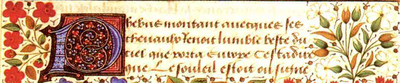 Phebus montant avecques ses
chevaulx Venoit lumble beste du
ciel que porta europe Cestadire
que Le souleil estoit ou signe